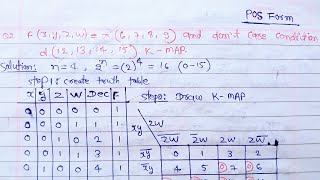 POS Form
Q2 F(3,y,z,w) = π(6,7,8,9) and don't case condition
d(12,13,14,15) K-MAP
Solution: n=4, 2ⁿ = (2)⁴ = 16 (0-15)
step1: create truth table
x y z w Dec F
step2: Draw K-MAP
0 0 0 0 0 1
0 0 0 1 1 1
0 0 1 0 2 1
0 0 1 1 3 1
0 1 0 0 4
xy zw z̅w̅ z̅w zw zw̅
x̅y̅ 0 1 3 2
x̅y 4 5 7 6